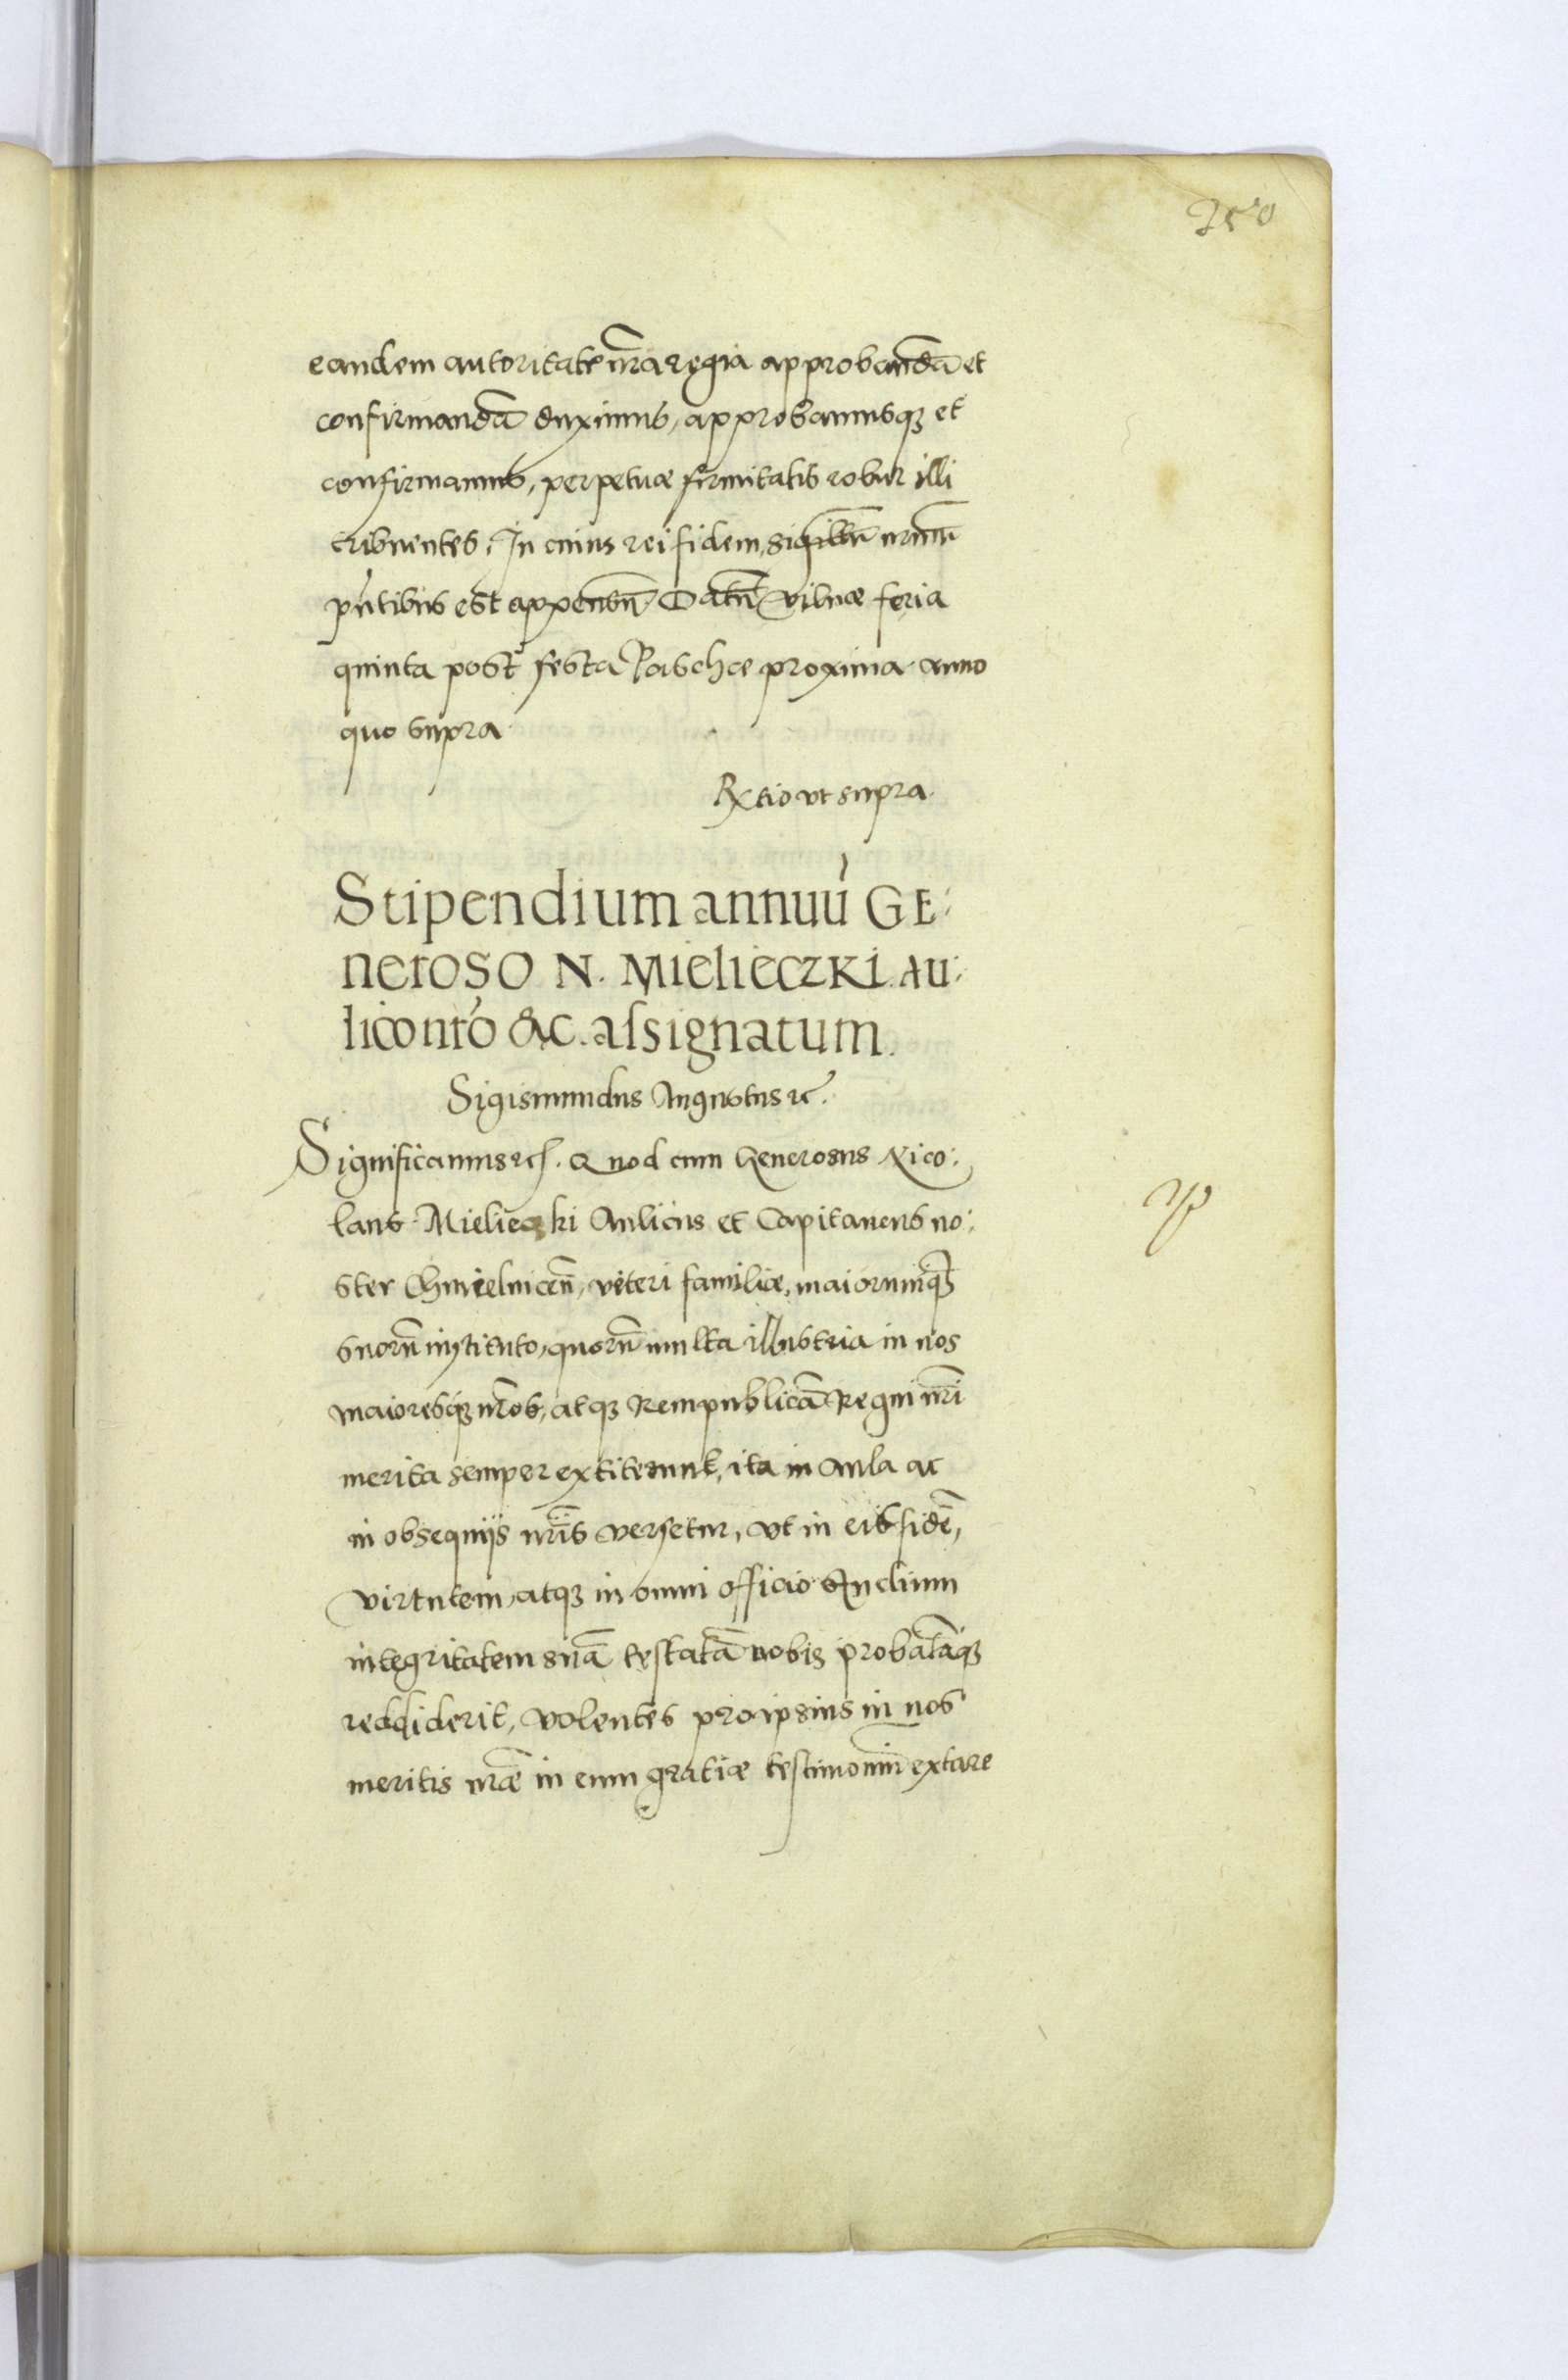 250
eandem autoritate nr̃a regia approbandã et
confirmandã duximus, approbamusqꝫ et
confirmamus, perpetuæ firmitatis robur illi
tribuentes. In cuius rei fidem, sigillũ nrũm
pñtibus est appensũ. Datũ Vilnæ feria
quinta post festa Paschæ proxima anno
quo supra.
Rxtio vt supra.
Stipendium annuũ GE:
neroso N. Mielieczki Au:
lico nr̃o &c. assignatum.
Sigismundus Augustus ꝛc.
Significamus ꝛc. Quod cum Generosus Nico:
laus Mielieczki Aulicus et Capitaneus no:
ster Chmielnicen̄, veteri familiæ, maiorumqꝫ
suorũ instituto, quorũ multa illustria in nos
maioresqꝫ nr̃os, atqꝫ Rempublicã Regni nr̃i
merita semper extiterunt, ita in Aula ac
in obsequijs nr̃is versetur, vt in eis fidẽ,
virtutem, atqꝫ in omni officio studium
integritatem suã testatã nobis probatãqꝫ
reddiderit, volentes pro ipsius in nos
meritis nr̃æ in eum gratiæ testimoniũ extare